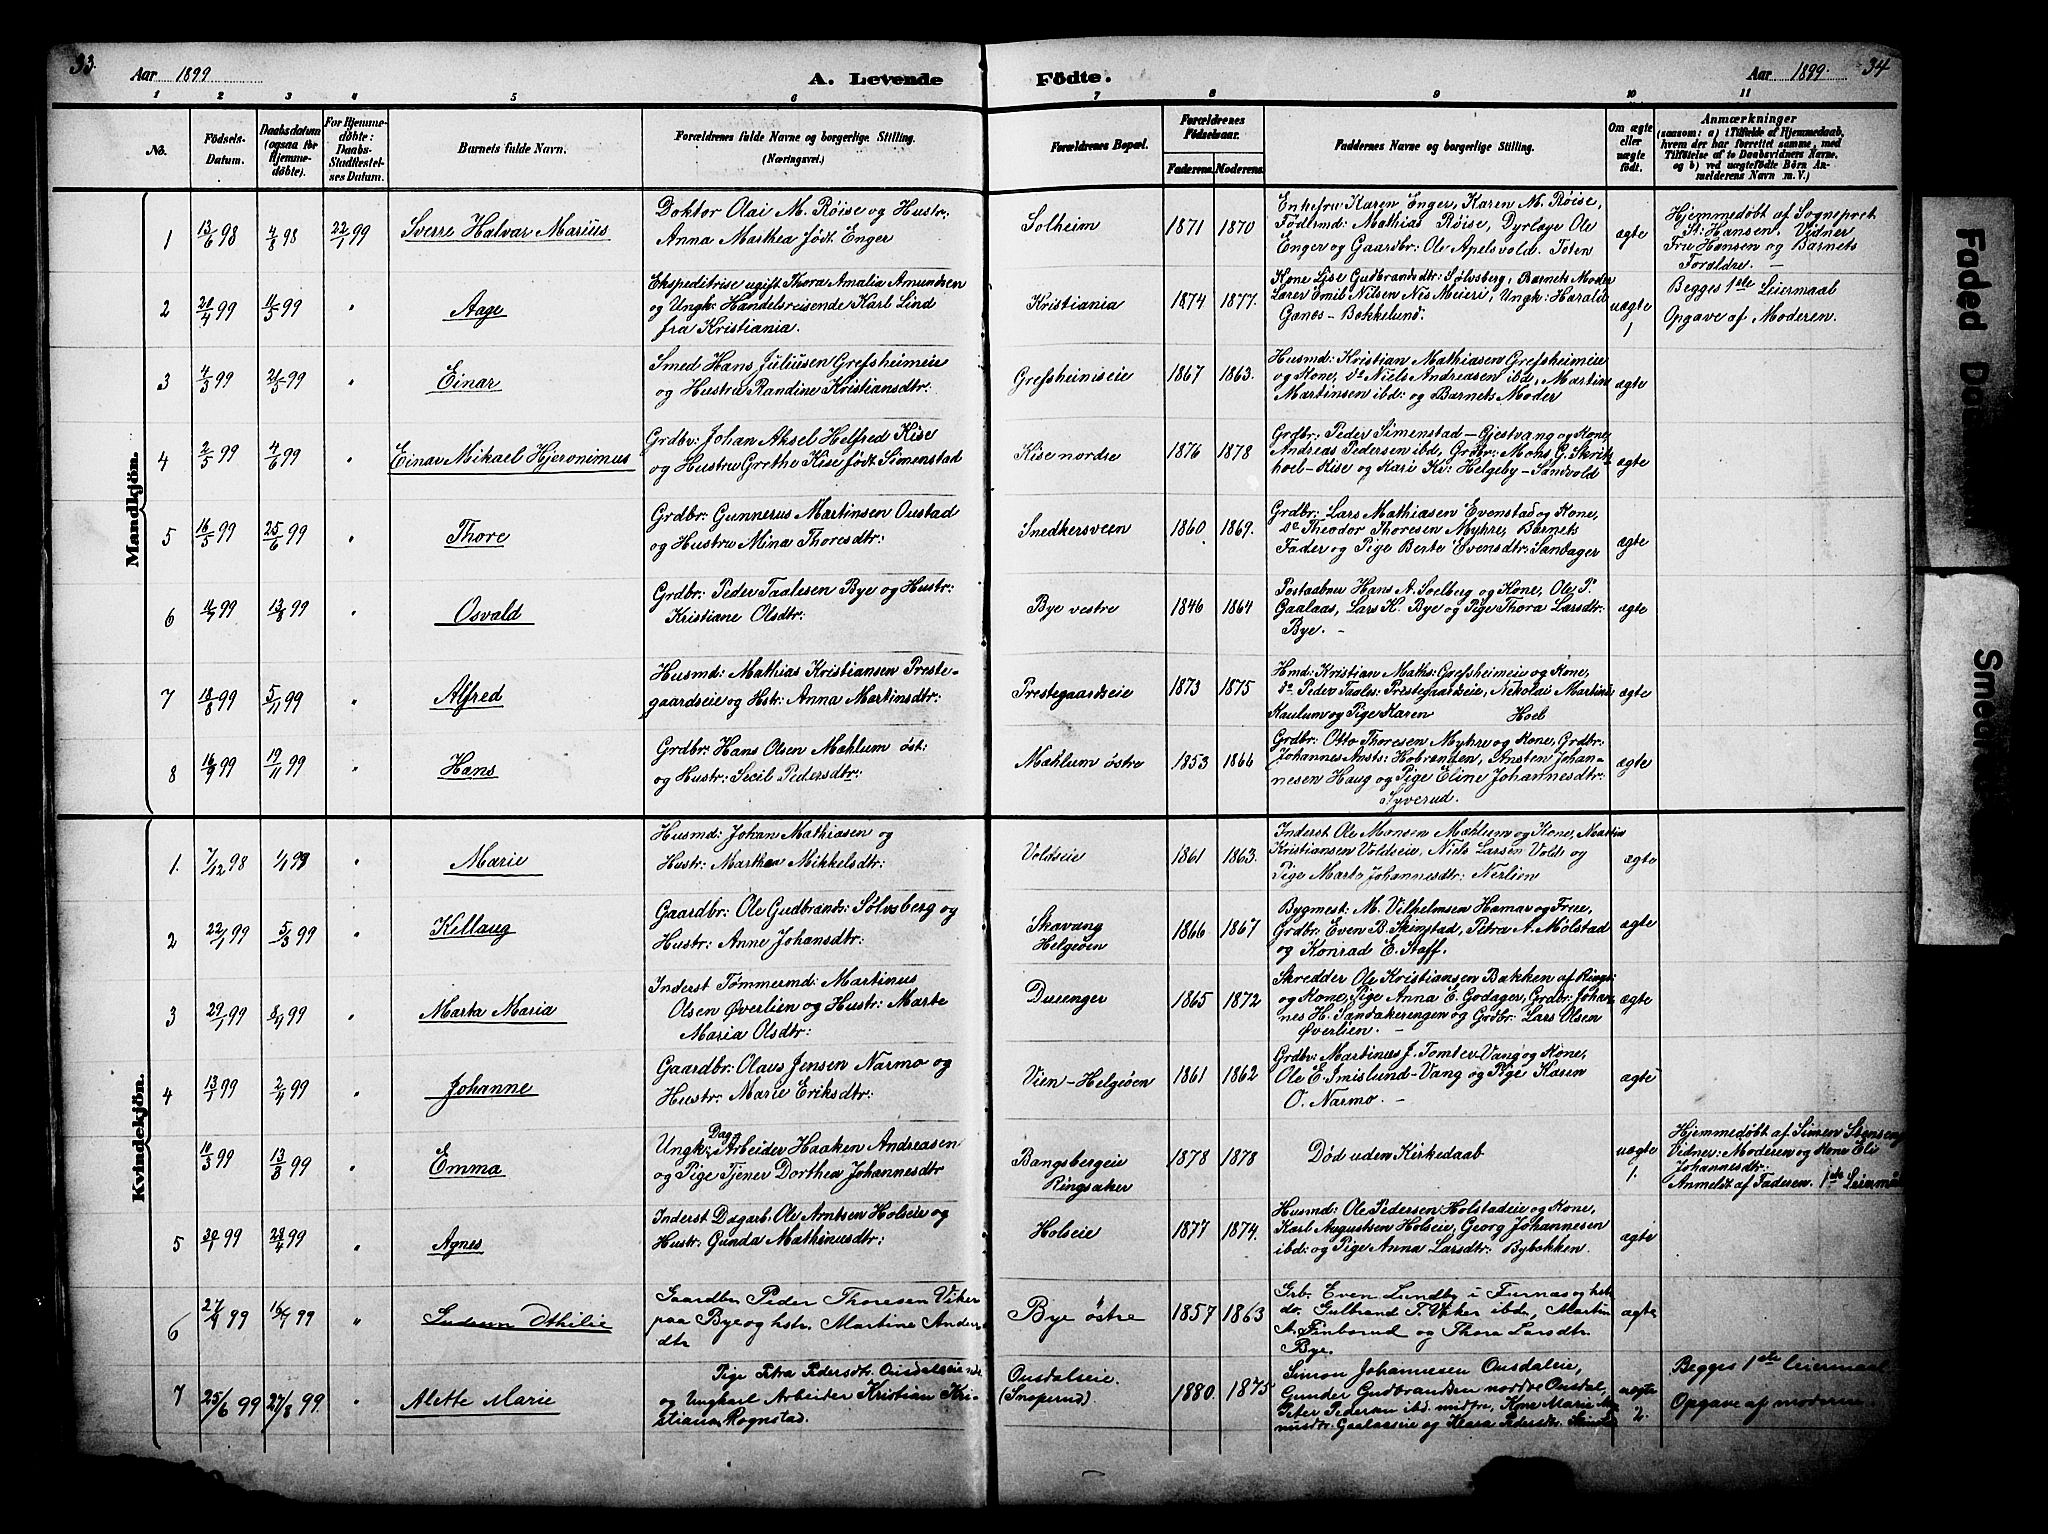 33.
Aar 1899
A. Levende
Födte.
Aar 1899.
34
1 2 3 4 5 6 7 8 9 10 11
No.
Födsels-Datum.
Daabsdatum (ogsaa for Hjemme-döbte).
For Hjemme-döbte: Daabs-Stadfæstel-ses Datum.
Barnets fulde Navn.
Forældrenes fulde Navne og borgerlige Stilling. (Næringsvei.)
Forældrenes Bopæl.
Forældrenes Födselsaar.
Faderens. Moderens.
Faddernes Navne og borgerlige Stilling.
Om ægte eller uægte födt.
Anmærkninger (saasom: a) i Tilfælde af Hjemmedaab, hvem der har forrettet samme, med Tilföielse af to Daabsvidners Navne, og b) ved uægtefödte Börn An-melderens Navn m. V.)
Mandkjön.
1 13/6 98 4/8 98 22/1 99 Sverre Halvar Marius
Doktor Olai M. Röise og Hustr:
Anna Marthea födt Enger
Solheim 1871 1870
Enkefru Karen Enger, Karen M. Röise,
Födermd: Mathias Röise, Dyrlæge Ole
Enger og Gaardbr: Ole Apelsvold. Toten
ægte
Hjemmedöbt af Sognepret
St: Hansen, Vidner
Fru Hansen og Barnets
Forældre. —
2 99 99 " Aage
Ekspeditrise ugift Thora Amalia Amundsen
og Ungk: Handelsreisende Karl Lind
fra Kristiania.
Kristiania 1874 1877.
Kone Lise Gudbrandsdtr: Sølvsberg, Barnets Moder
Lærer Emil Nilsen Nes Meieri, Ungk: Harald
Ganes - Bakkelund.
uægte 1
Begges 1ste Leiermaal
Opgave af Moderen.
3 4/5 99 21/5 99 " Einar
Smed Hans Juliusen Grefsheimeie
og Hustru Randine Kristiansdtr:
Grefsheimseie 1867 1863.
Husmd: Kristian Mathiasen Grefsheimeie
og Kone, do Niels Andreasen ibd, Martin
Martinsen ibd: og Barnets Moder
ægte
4 2/5 99 4/6 99 " Einar Mikael Hjeronimus
Grdbr: Johan Aksel Helfred Kise
og Hustru Grethe Kise födt Simenstad
Kise nordre 1876 1878
Grdbr: Peder Simenstad - Gjestvang og Kone,
Andreas Pedersen ibd, Grdbr: Mons G. Skrik-
hoel-Kise og Kari Kr: Helgeby - Sandvold
ægte
5 16/5 99 25/6 99 " Thore
Grdbr: Gunnerus Martinsen Oustad
og Hustru Mina Thoresdtr:
Snedkersveen 1860 1869.
Grdbr: Lars Mathiasen Evenstad og Kone,
do Theodor Thoresen Myhre, Barnets
Fader og Pige Berte Evensdtr: Sandager
ægte
6 99 13/8 99 " Osvald
Grdbr: Peder Taalesen Bye og Hustr:
Kristiane Olsdtr:
Bye vestre 1846 1864
Postaabner Hans A. Soelberg og Kone, Ole P.
Gaalaas, Lars K. Bye og Pige Thora Larsdtr:
Bye. —
ægte
7 18/8 99 5/11 99 " Alfred
Husmd: Mathias Kristiansen Preste-
gaardseie og Hstr: Anna Martinsdtr:
Prestegaardseie 1873 1875
Hmd: Kristian Maths: Grefsheimeie og Kone,
do. Peder Taales: Prestegaardseie, Nikolai Martins
Kaulum og Pige Karen Hoel
ægte
8 16/9 99 19/11 99 " Hans
Grdbr: Hans Olsen Mæhlum öst:
og Hustr: Secil Pedersdtr:
Mæhlum østre 1853 1866
Grdbr: Otto Thoresen Myhre og Kone, Grdbr:
Johannes Ansts: Hobrænden, Ansten Johan-
nesen Haug og Pige Eline Johannesdtr:
Syverud.
ægte
Kvindekjön.
1. 7/12 98 1/1 99 " Marie
Husmd: Johan Mathiasen og
Hustr: Marthea Mikkelsdtr:
Voldseie 1861 1863.
Inderst Ole Monsen Mæhlum og Kone, Martin
Kristiansen Voldseie, Niels Larsen Vold og
Pige Marta Johannesdtr: Nerlien
ægte
2 22/1 99 5/3 99 " Killaug
Gaardbr: Ole Gudbrands: Sølvsberg og
Hustr: Anne Johansdtr:
Skavang
Helgøen 1866 1867
Bygmest: M. Vilhelmsen Hamar og Frue,
Grdbr: Even B. Skinstad, Petra A. Molstad
og Konrad E. Staff.
ægte
3 29/1 99 99 " Marta Maria
Inderst Tömmermd: Martinus
Olsen Øverlien og Hustr: Marte
Maria Olsdtr:
Durenger 1865 1872
Skredder Ole Kristiansen Bakken af Rings:
og Kone, Pige Anna E. Godager, Grdbr: Johan-
nes H. Sandakerengen og Grdbr: Lars Olsen
Øverlien. —
ægte
4 13/1 99 2/4 99 " Johanne
Gaardbr: Olaus Jensen Narmo og
Hustr: Marie Eriksdtr:
Vien - Helgöen 1861 1862
Grdbr: Martinus J. Tomter-Vang og Kone,
Ole E. Imislund-Vang og Pige Karen
O. Narmo. —
ægte
10/3 99 13/3 99 " Emma
Ungk: Dag Arbeider Haaken Andreasen
og Pige Tjener Dorthea Johannesdtr
Bangsbergeie
Ringsaker 1878 1878
Død uden Kirkedaab
uægte 1.
Hjemmedöbt af Simen Stenseng
Vidner: Moderen og Kone Eli
Johannesdtr:
Anmeldt af Faderen. 1ste Leiermaal
5 99 23/4 99 " Agnes
Inderst Dagarb. Ole Arntsen Holseie og
Hustr: Gunda Mathinusdtr:
Holseie 1877 1874.
Husmd: Ole Pedersen Holstadeie og Kone,
Karl Augustsen Holseie, Georg Johannesen
ibd: og Pige Anna Larsdtr: Bybakken.
ægte
6 27/4 99 16/7 99 " Gudrun Othilie
Gaardbr. Peder Thoresen Viker
paa Bye og hstr. Martine Anders
dtr
Bye östre 1857 1863
Grb. Even Lundby i Furnes og hstr
do. Gulbrand T. Viker ibd, Martin
A. Finborud og Thora Larsdtr.
Bye.
ægte
7 25/6 99 27/8 99. " Alette Marie
Pige Petra Pedersdtr. Ousdalseie
og Ungkarl Arbeider Kristian Kri-
stiansen Rognstad.
Ousdalseie.
(Snoperud) 1880 1875
Simon Johannesen Ousdaleie,
Gunder Gudbrandsen nordre Ousdal,
Peter Pedersen ibd. midtre, Kone Marie
Gaalaaseie og Klara Pedersdtr.
uægte 2.
Begges 1ste Leiermaal
Opgave af moderen.
Faded Do
Smear